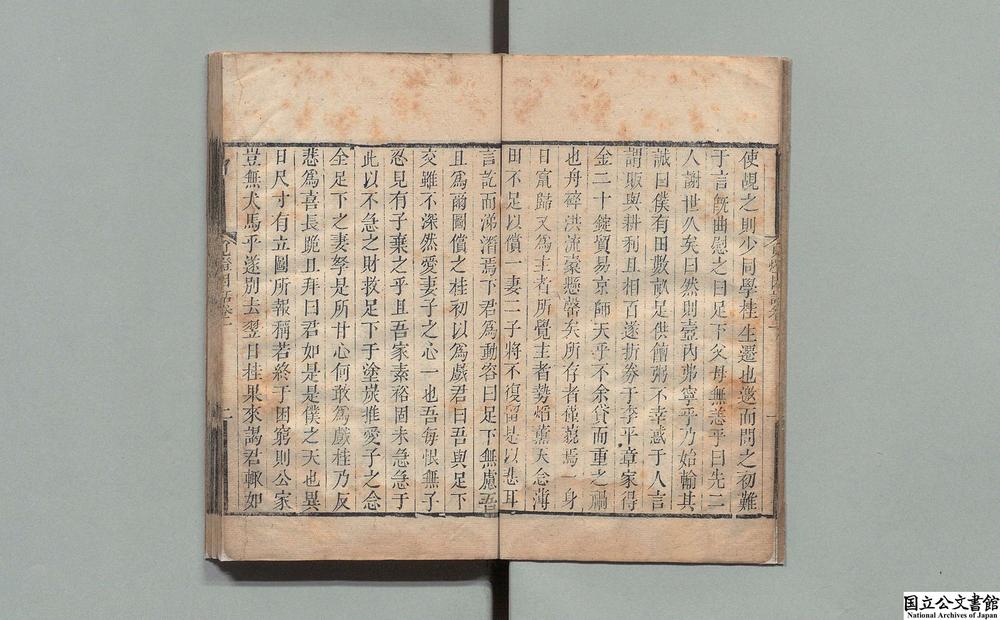 使覘之則少同學桂生遷也邀而問之初難
于言既曲慰之曰足下父母無恙乎曰先二
人謝世久矣曰然則壼內弗寧乎乃始輸其
誠曰僕有田數畝足供饘粥不幸惑于人言
謂販與耕利且相百遂折券于李平章家得
金二十錠貿易京師天乎不余貸而重之禍
也舟碎洪流槖懸罄矣所存者僅藐焉一身
日竄歸又為主者所覺主者勢焰薰天念薄
田不足以償一妻二子將不復留是以悲耳
言訖而涕潸焉下君為動容曰足下無慮吾
且為爾圖償之桂初以為戲君曰吾與足下
交雖不深然愛妻子之心一也吾每恨無子
忍見有子棄之乎且吾家素裕固未急急于
此以不急之財救足下于塗炭推愛子之念
全足下之妻孥是所甘心何敢為戲桂乃反
悲為喜長跪且拜曰君如是是僕之天也異
日尺寸有立圖所報稱若終于困窮則公家
豈無犬馬乎遂別去翌日桂果來謁君輙如
覓燈因話卷一
二
国立公文書館
National Archives of Japan